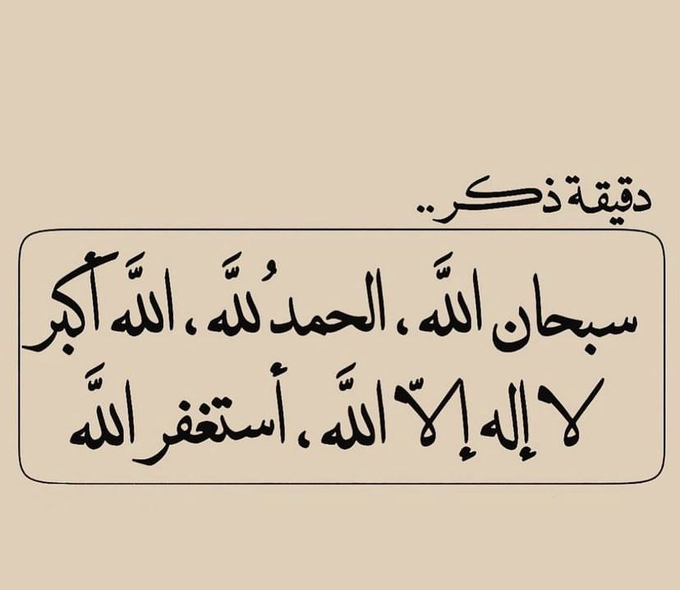 دقيقة ذكر..
سبحان اللَّه ، الحمدُ للَّه ، اللَّه أكبر
لا إله إلّا اللَّه ، أستغفر اللَّه